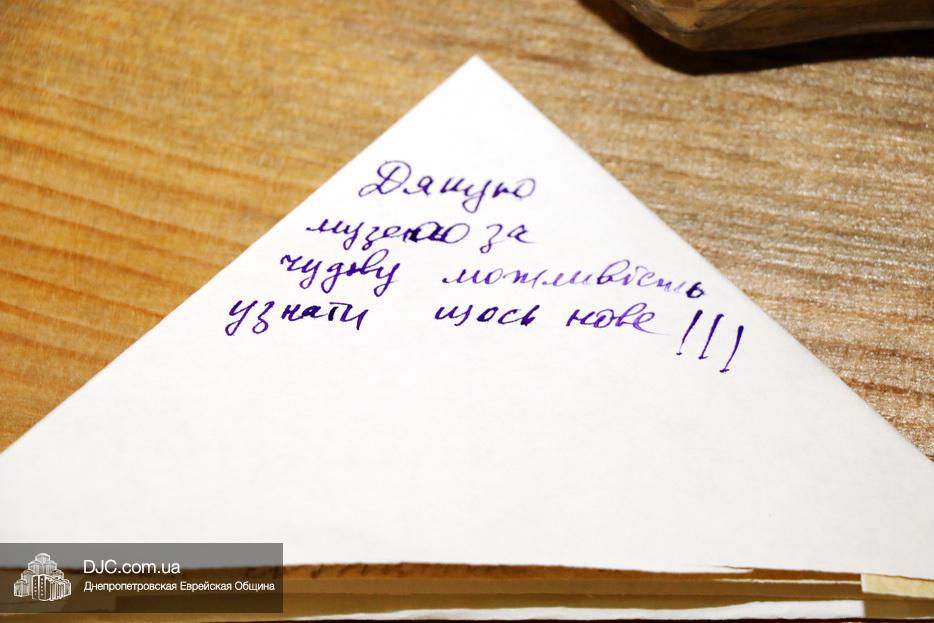 Дякую
музею за
чудову можливість
узнати щось нове!!!
DJC.com.ua
Днепропетровская Еврейская Община